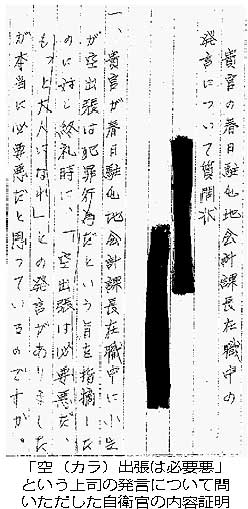 貴官の春日駐屯地会計課長在職中の
発言について質問状
一、貴官が春日駐屯地会計課長在職中に小生
が空出張は犯罪行為だという旨を指摘した
のに対し終礼時に、「空出張は必要悪だ、
もっと大人になれ」との発言がありました
が本当に必要悪だと思っているのですか。
「空（カラ）出張は必要悪」
という上司の発言について問
いただした自衛官の内容証明